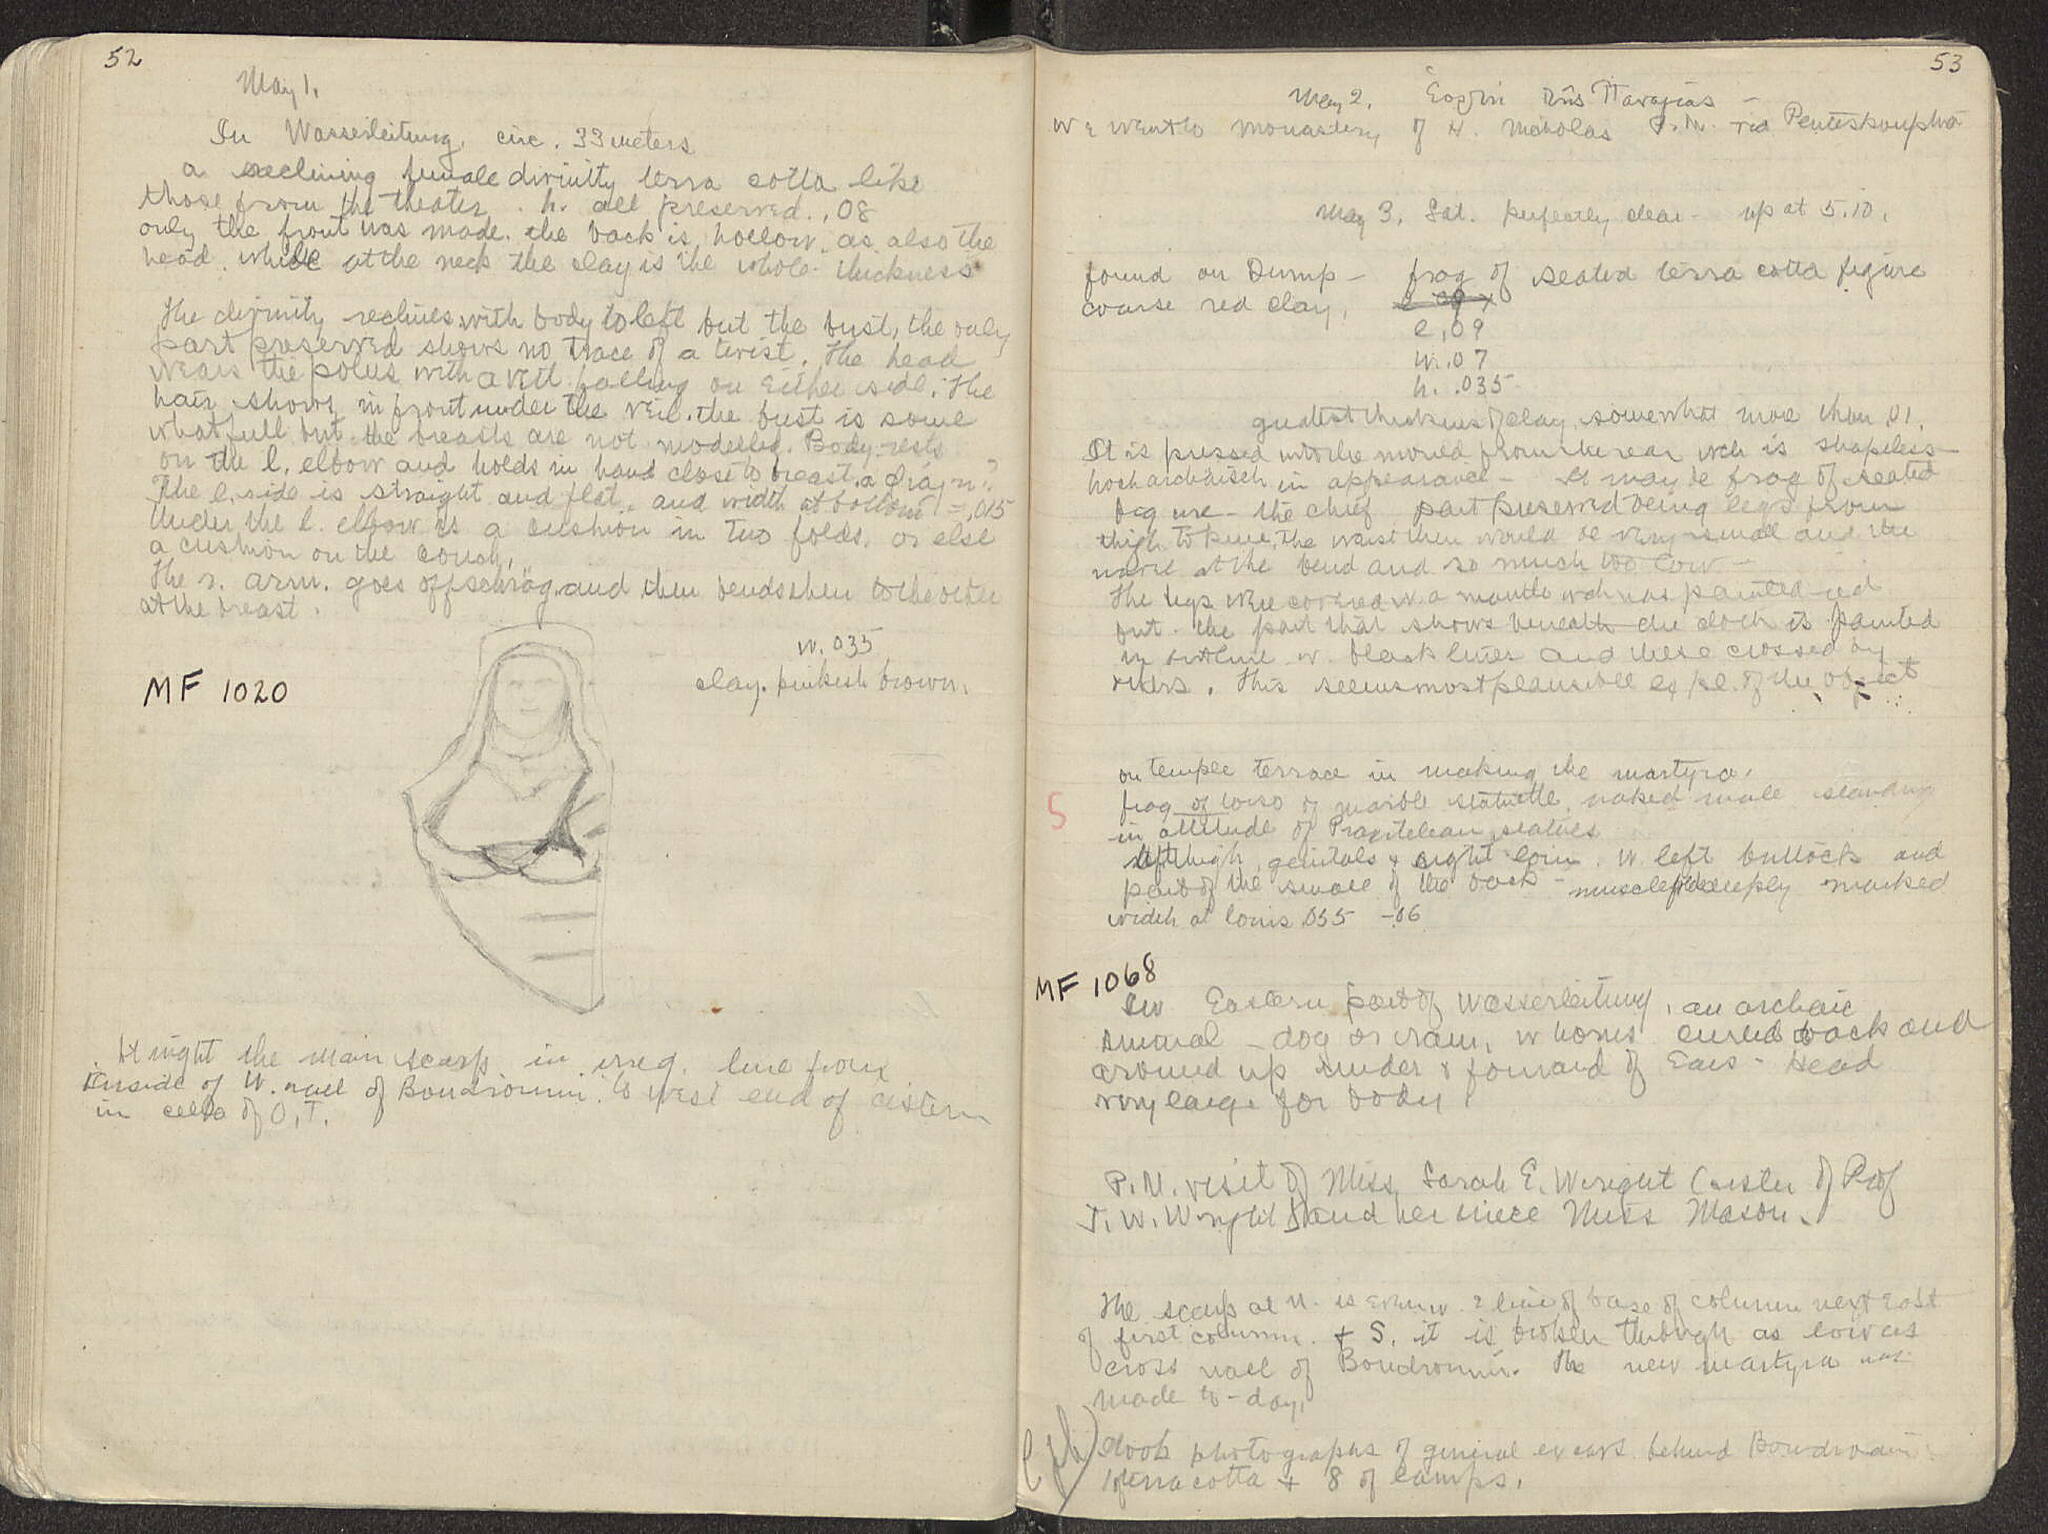 52
May 1.
In Wasserleitung, circ. 33 meters
a reclining female divinity terra cotta like
those from the theater. h. all preserved. .08
only the front was made. the back is hollow. as also the
head. while at the neck the clay is the whole thickness
The divinity reclines with body to left but the bust, the only
part preserved shows no trace of a twist. The head
wears the polus with a veil falling on either side. The
hair shows in front under the veil. the bust is some
what full but the breasts are not modelled. Body rests
on the l. elbow and holds in hand close to breast a
The l. side is straight and flat. and width at bottom = .015
Under the l. elbow is a cushion in two folds. or else
a cushion on the couch.
The r. arm. goes off schräg and then bends then to the other
at the breast.
w. .035
clay. pinkish brown.
MF 1020
At night the main scarp in irreg. line from
inside of W. wall of Boudroumi to west end of cistern
in cella of O.T.
53
May 2.
We went to monastery of H. Nicholas P.M. via Penteskouphia
May 3. Sat. perfectly clear - up at 5.10.
found on Dump - frag of seated terra cotta figure
coarse red clay.
l. .09
w. .07
h. .035
greatest thickness of clay somewhat more than .01.
It is pressed into the mould from the rear wch is shapeless
hocharchaisch in appearance - It may be frag of seated
figure - the chief part preserved being legs from
thigh to knee, the waist then would be very small and the
at the bend and so much too low -
The legs were covered w. a mantle wch was painted red
but the part that shows beneath the cloth is painted
in outline w. black lines and these crossed by
others. This seems most plausible expl. of the object
on temple terrace in making the martyra.
5
frag of torso of marble statuette, naked male standing
in attitude of Praxitelean statues
left thigh, genitals & right loin. w left buttock and
part of the small of the back - muscles deeply marked
width at loins .055 - .06
MF 1068
In Eastern part of Wasserleitung, an archaic
animal - dog or ram, w horns curled back and
around up under & forward of Ears - Head
very large for body.
P.M. visit of Miss Sarah E. Wright (sister of Prof
J. W. Wright) and her niece Miss Mason.
The scarp at N. is even w. line of base of column next East
of first column. & S. it is broken through as low as
cross wall of Boudroumi. The new martyra was
made to-day.
Took photographs of general excavs behind Boudroumi
1 of terracotta & 8 of lamps.